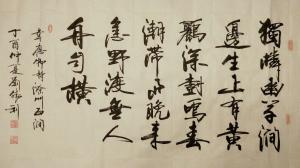 獨憐幽草澗
邊生上有黃
鸝深樹鳴春
潮帶雨晚來
急野渡無人
舟自橫
韋應物詩滁州西澗
丁酉仲夏劉